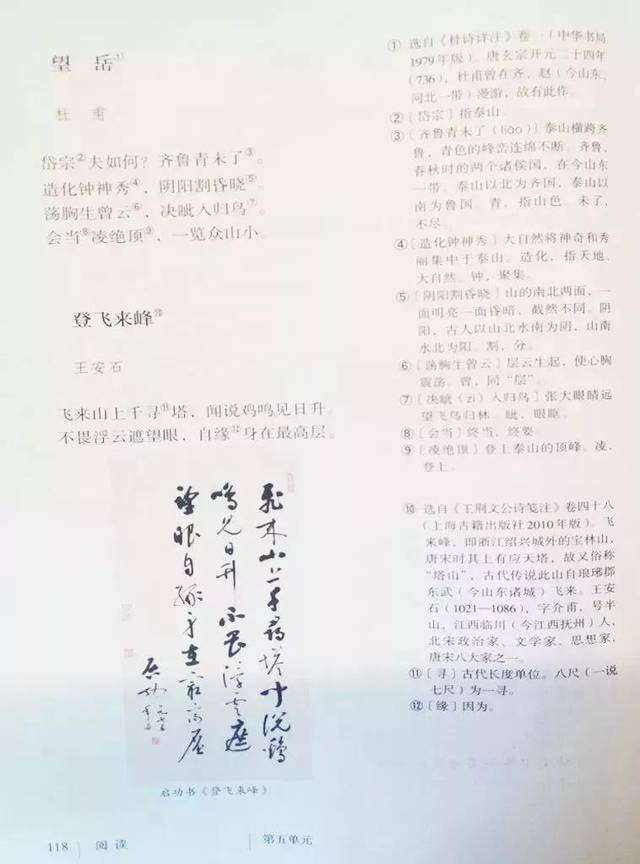 望岳①
杜甫
岱宗②夫如何？齐鲁青未了③。
造化钟神秀④，阴阳割昏晓⑤。
荡胸生曾云⑥，决眦入归鸟⑦。
会当⑧凌绝顶⑨，一览众山小。
登飞来峰⑩
王安石
飞来山上千寻⑪塔，闻说鸡鸣见日升。
不畏浮云遮望眼，自缘⑫身在最高层。
飞来山上千寻塔闻说鸡
鸣见日升不畏浮云遮
望眼自缘身在最高层
启功
启功书《登飞来峰》
① 选自《杜诗详注》卷一（中华书局
1979年版）。唐玄宗开元二十四年
（736），杜甫曾在齐、赵（今山东、
河北一带）漫游，故有此作。
②〔岱宗〕指泰山。
③〔齐鲁青未了（liǎo）〕泰山横跨齐
鲁，青色的峰峦连绵不断。齐鲁，
春秋时的两个诸侯国，在今山东
一带。泰山以北为齐国，泰山以
南为鲁国。青，指山色。未了，
不尽。
④〔造化钟神秀〕大自然将神奇和秀
丽集中于泰山。造化，指天地、
大自然。钟，聚集。
⑤〔阴阳割昏晓〕山的南北两面，一
面明亮一面昏暗，截然不同。阴
阳，古人以山北水南为阴，山南
水北为阳。割，分。
⑥〔荡胸生曾云〕层云生起，使心胸
震荡。曾，同“层”。
⑦〔决眦（zì）入归鸟〕张大眼睛远
望飞鸟归林。眦，眼眶。
⑧〔会当〕终当，终要。
⑨〔凌绝顶〕登上泰山的顶峰。凌，
登上。
⑩ 选自《王荆文公诗笺注》卷四十八
（上海古籍出版社2010年版）。飞
来峰，即浙江绍兴城外的宝林山，
唐宋时其上有应天塔，故又俗称
“塔山”，古代传说此山自琅琊郡
东武（今山东诸城）飞来。王安
石（1021—1086），字介甫，号半
山，江西临川（今江西抚州）人，
北宋政治家、文学家、思想家，
唐宋八大家之一。
⑪〔寻〕古代长度单位。八尺（一说
七尺）为一寻。
⑫〔缘〕因为。
118 阅读 第五单元